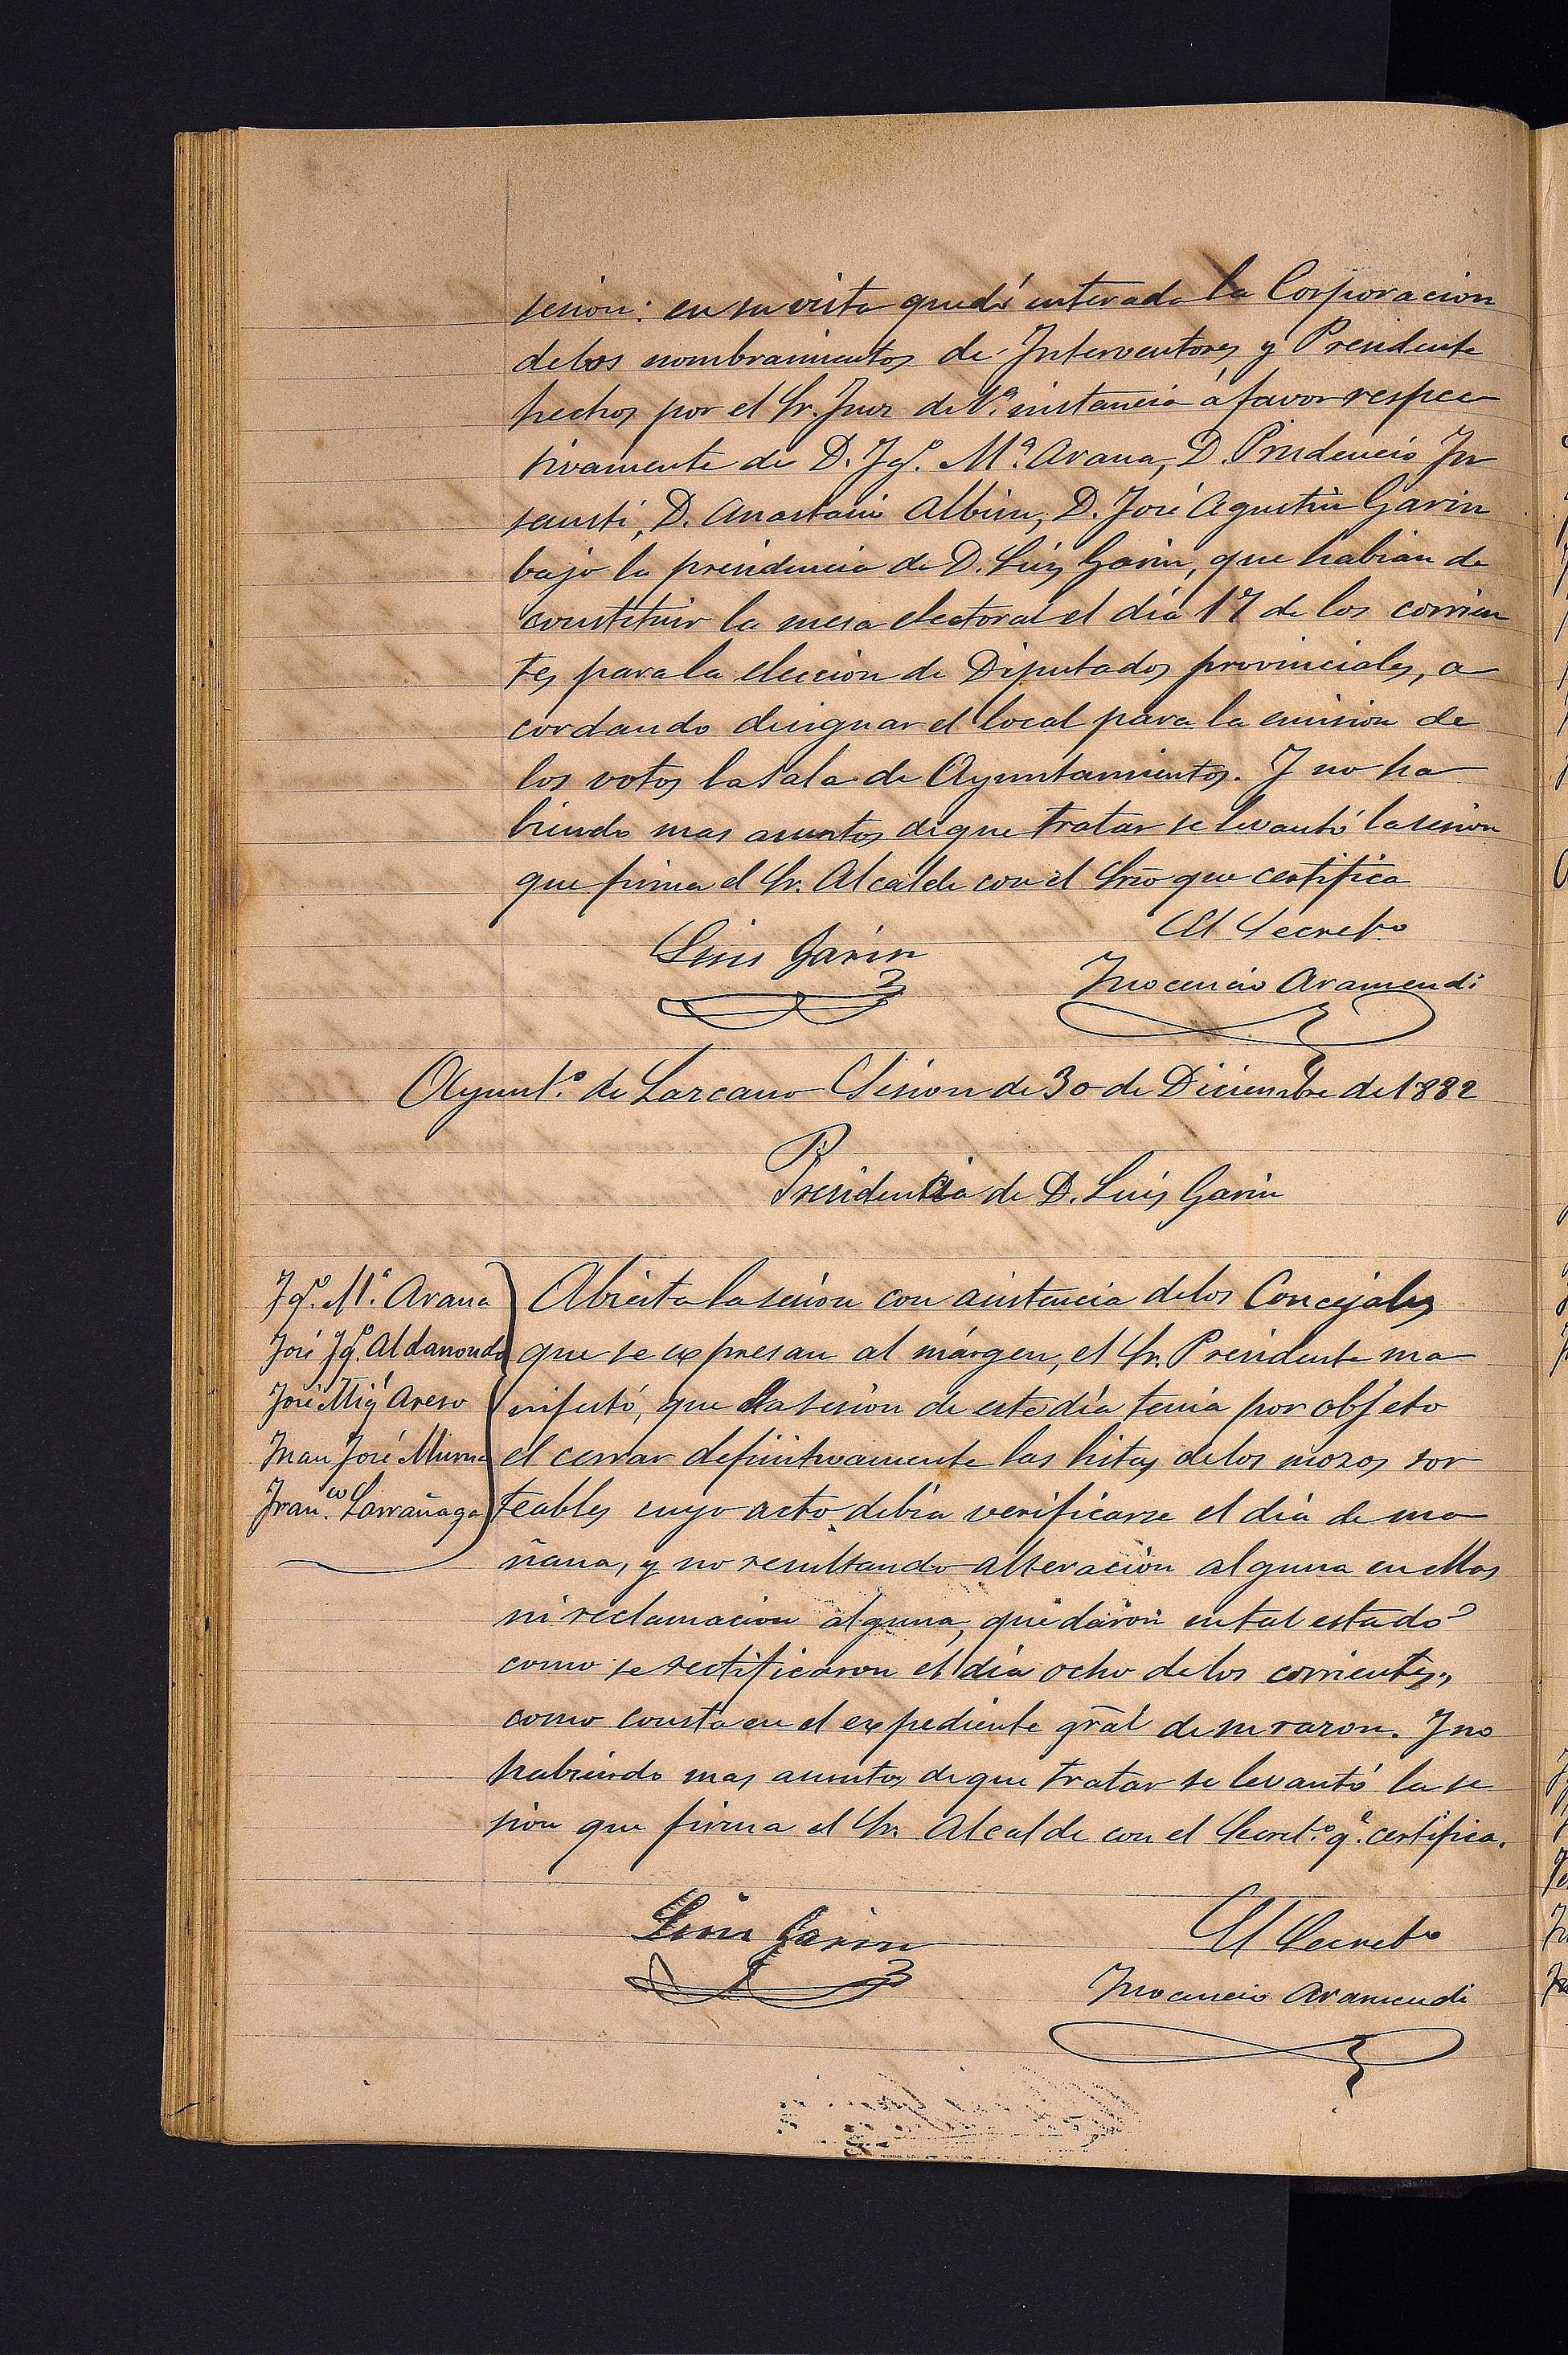 sesion: en su vista quedó enterada la Corporacion
de los nombramientos de Interventores y Presidente
hechos por el Sr. Juez de 1ª. instancia á favor respec
tivamente de D. Jqº. Mª. Arana, D. Prudencio In
sausti, D. Anastasio Albisu, D. José Agustin Garin
bajo la presidencia de D. Luis Garin, que habian de
constituir la mesa electoral el dia 17 de los corrien
tes para la eleccion de Diputados provinciales, a
cordando designar el local para la emision de
los votos la Sala de Ayuntamientos. Y no ha
biendo mas asuntos de que tratar se levantó la sesion
que firma el Sr. Alcalde con el Srio que certifica
El Secretº
Luis Garin
Inocencio Aramendi
Ayuntº. de Lazcano Sesion de 30 de Diciembre de 1882
Presidencia de D. Luis Garin
Jqº. Mª. Arana
José Jqº. Aldanondo
José Migl Areso
Juan José Murua
Franco. Larrañaga
Abierta la sesion con asistencia de los Concejales
que se expresan al márgen, el Sr. Presidente ma
nifestó, que la sesion de este dia tenia por objeto
el cerrar definitivamente las listas de los mozos sor
teables cuyo acto debia verificarse el dia de ma
ñana, y no resultando alteracion alguna en ellas
ni reclamacion alguna, quedaron en tal estado
como se rectificaron el dia ocho de los corrientes,
como consta en el expediente gral de su razon. Y no
habiendo mas asuntos de que tratar se levantó la se
sion que firma el Sr. Alcalde con el Secretº. qe. certifica.
Luis Garin
El Secretº
Inocencio Aramendi